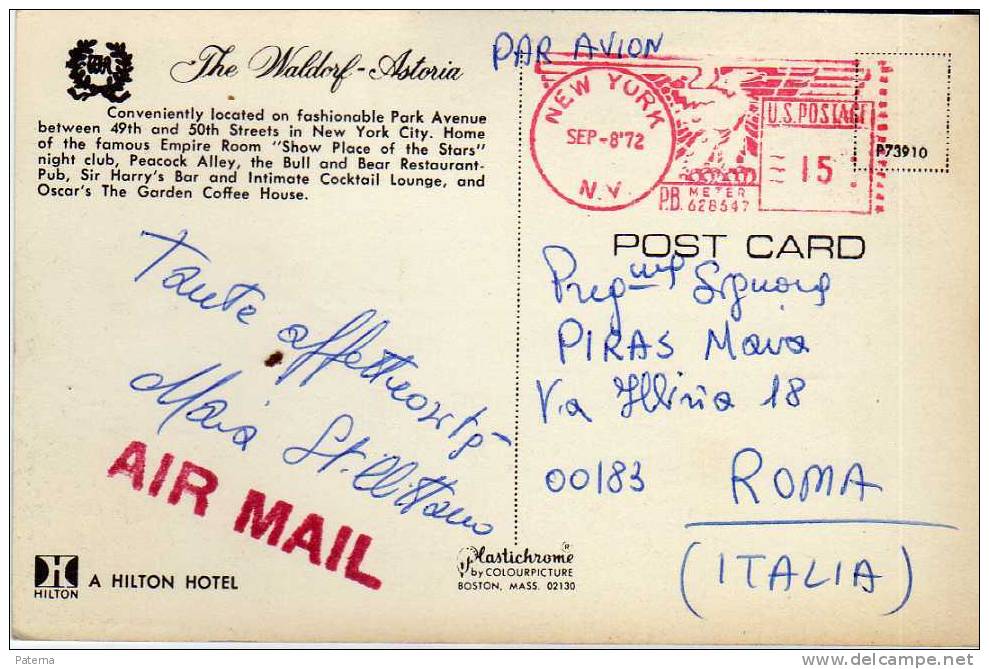 The Waldorf-Astoria
Conveniently located on fashionable Park Avenue
between 49th and 50th Streets in New York City. Home
of the famous Empire Room "Show Place of the Stars"
night club, Peacock Alley, the Bull and Bear Restaurant-
Pub, Sir Harry's Bar and Intimate Cocktail Lounge, and
Oscar's The Garden Coffee House.
Tante affettuosità
Maria Stillittano
AIR MAIL
HILTON
A HILTON HOTEL
Plastichrome®
by COLOURPICTURE
BOSTON, MASS. 02130
PAR AVION
NEW YORK
SEP-8'72
N.Y.
U.S. POSTAGE
15
P.B. METER
628647
P73910
POST CARD
Preg.ma Signora
PIRAS Maria
Via Illiria 18
00183 ROMA
(ITALIA)
Paterna
www.delcampe.net